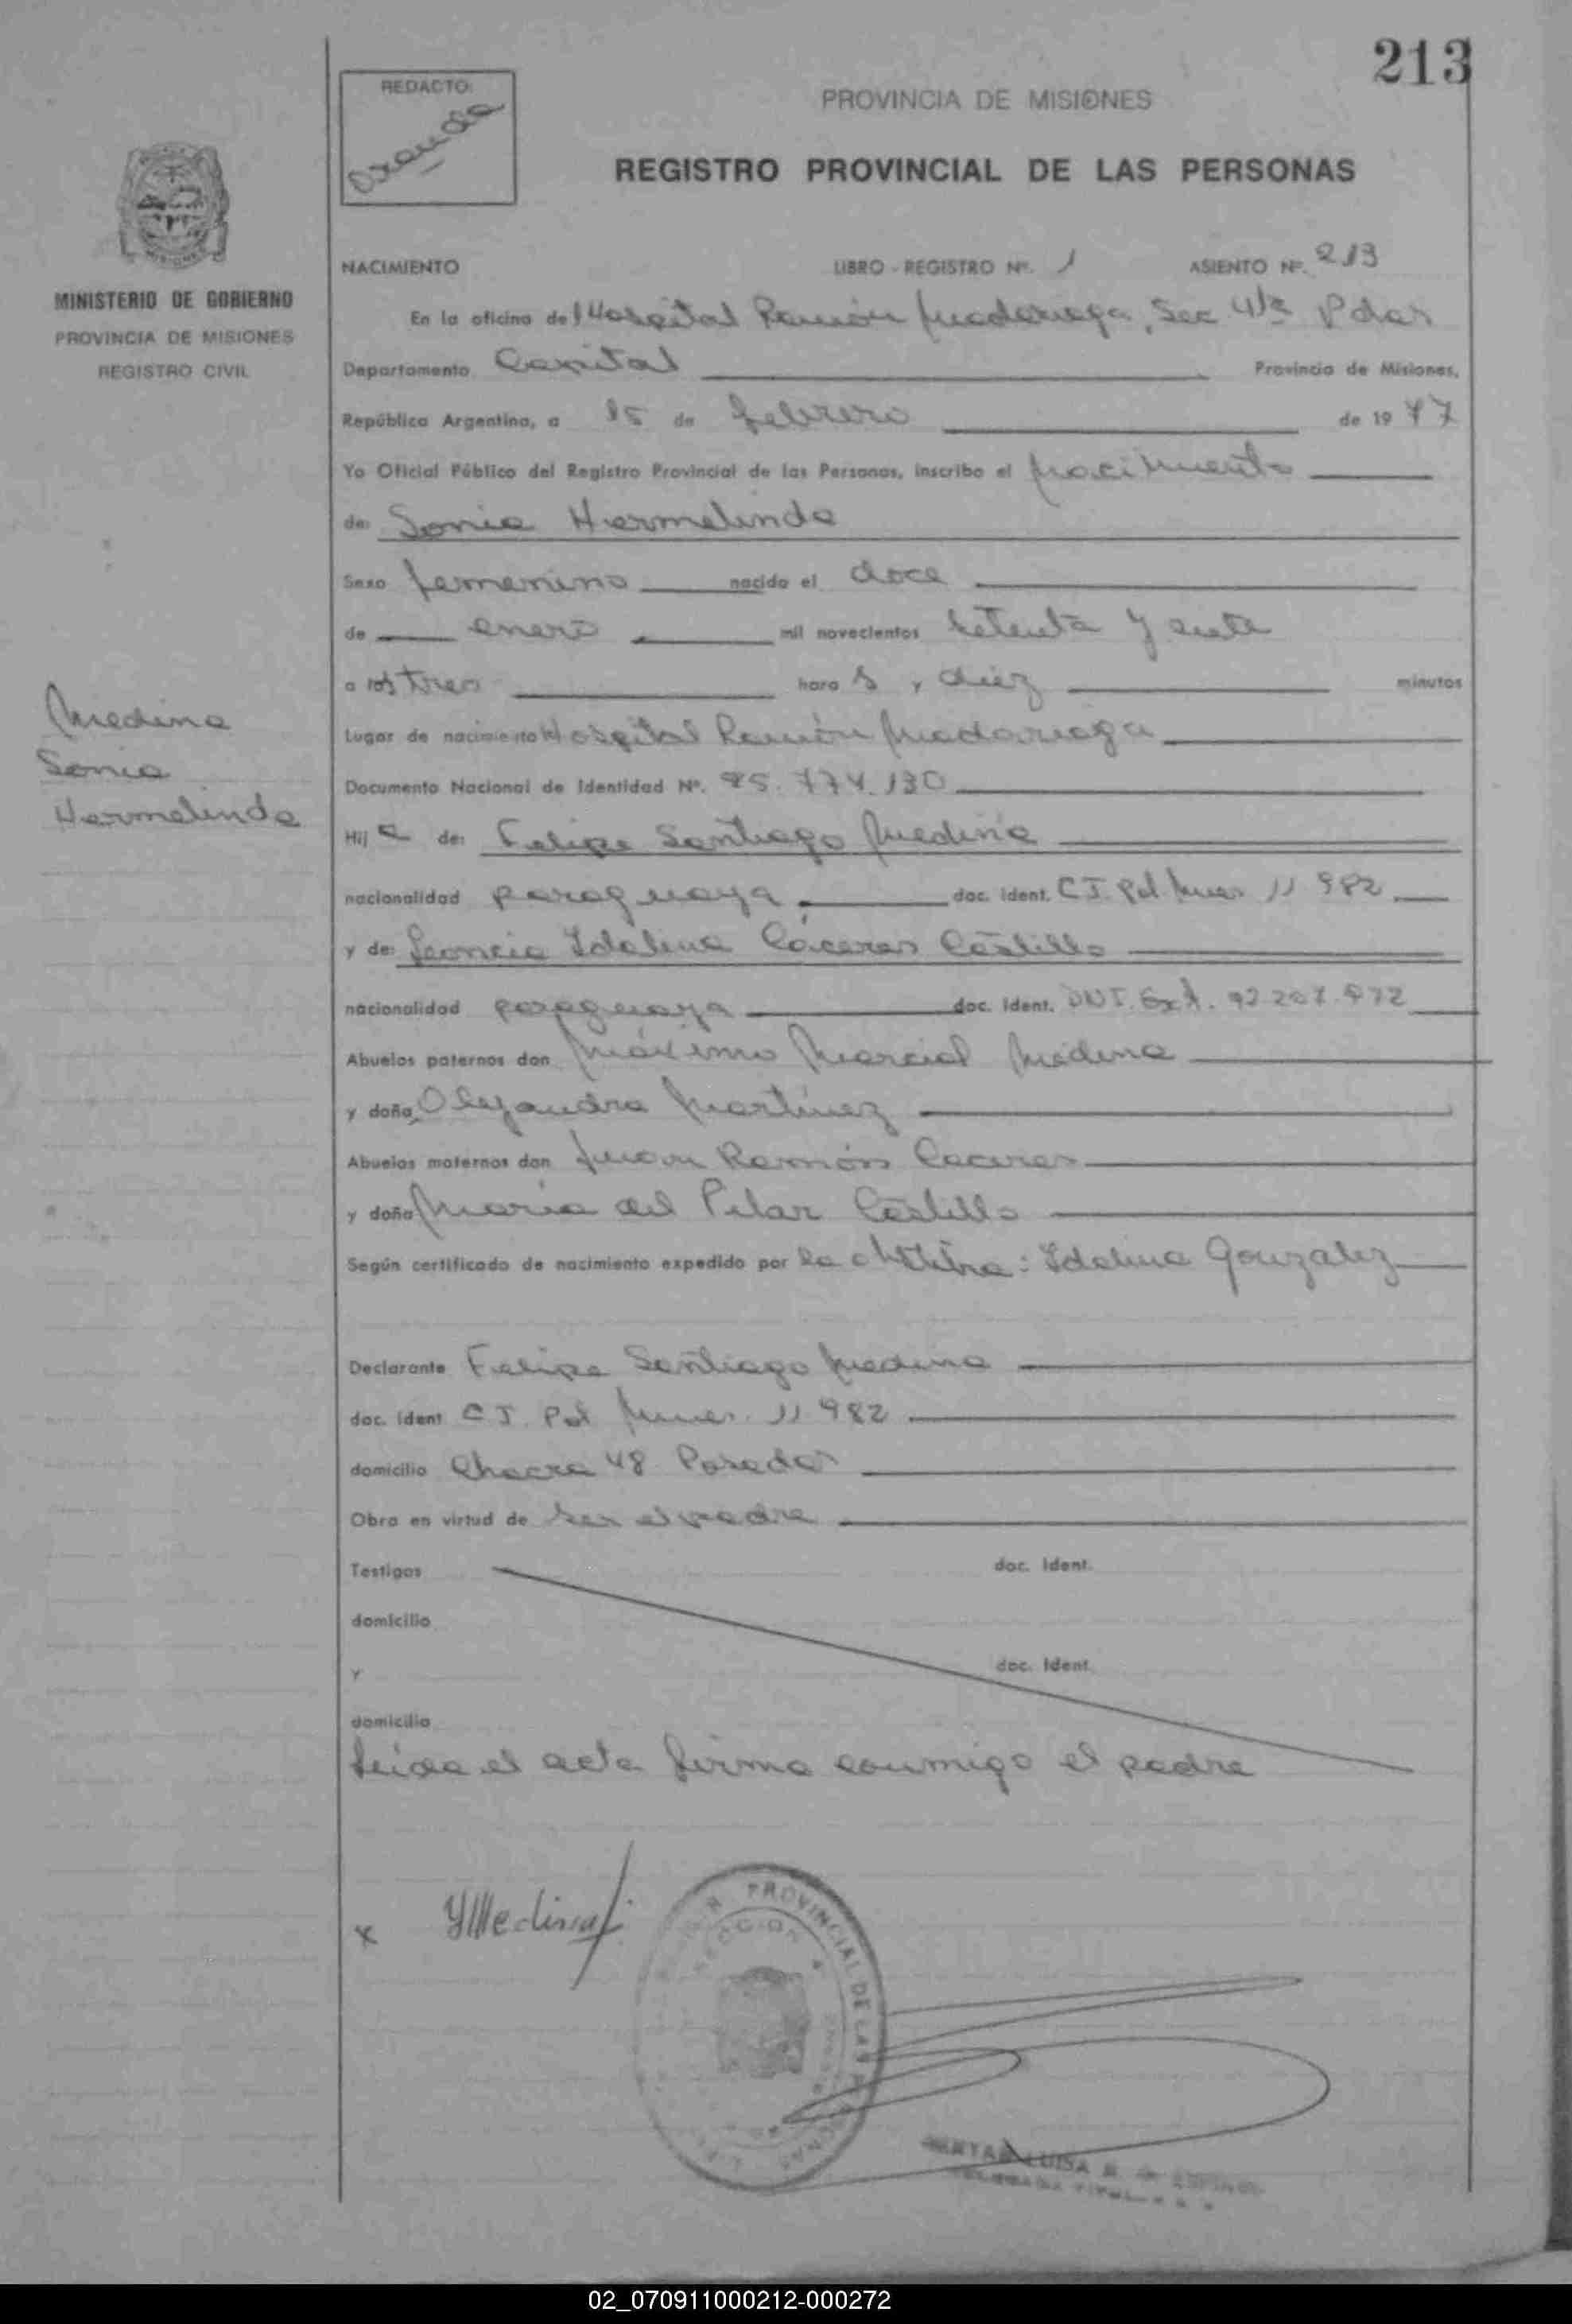 213
REDACTO:
PROVINCIA DE MISIONES
REGISTRO PROVINCIAL DE LAS PERSONAS
MINISTERIO DE GOBIERNO
PROVINCIA DE MISIONES
REGISTRO CIVIL
NACIMIENTO LIBRO - REGISTRO Nº. 1 ASIENTO Nº. 213
En la oficina del Hospital Ramón Madariaga, Sec 4ta Pdas
Departamento Capital Provincia de Misiones,
República Argentina, a 15 de febrero de 1977
Yo Oficial Público del Registro Provincial de las Personas, inscribo el nacimiento
de: Sonia Hermelinda
Sexo femenino nacido el doce
de enero mil novecientos setenta y siete
a las tres hora s y diez minutos
Medina
Sonia
Hermelinda
Lugar de nacimiento Hospital Ramón Madariaga
Documento Nacional de Identidad Nº. 25.774.130
Hij a de: Felipe Santiago Medina
nacionalidad paraguaya doc. ident. C I. Pol Mnes. 11 982
y de: Leoncia Idalina Cáceres Castillo
nacionalidad paraguaya doc. ident. DNI. Ext. 92 207.972
Abuelos paternos don Máximo Marcial Medina
y doña Alejandra Martínez
Abuelos maternos don Juan Ramón Caceres
y doña María del Pilar Castillo
Según certificado de nacimiento expedido por la obstetra: Idalina Gonzalez
Declarante Felipe Santiago Medina
doc. ident C I. Pol Mnes. 11 982
domicilio Chacra 48 Posadas
Obra en virtud de ser el padre
Testigos doc. ident.
domicilio
y doc. ident.
domicilio
Leída el acta firma conmigo el padre
x Medina
PROVINCIAL DE LAS
SECCION 4
LUISA
02_070911000212-000272